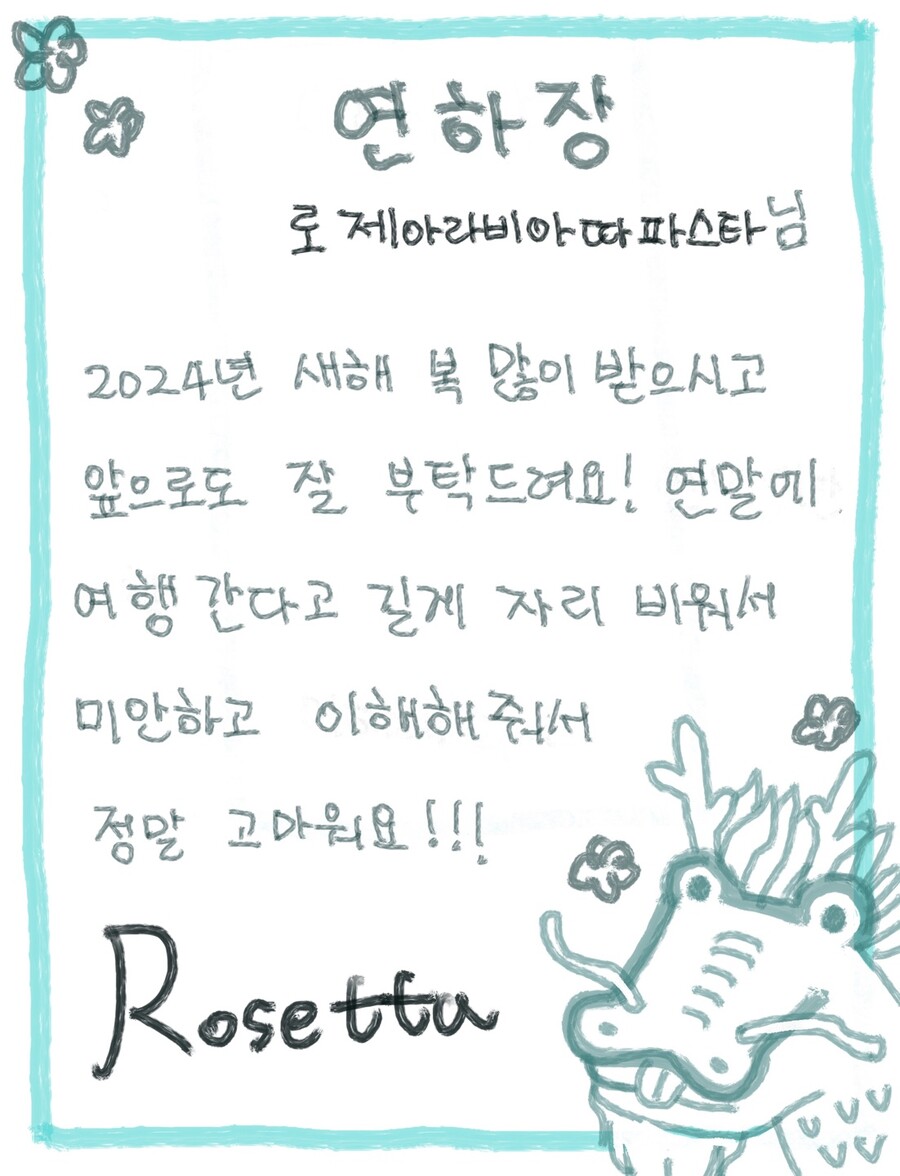 연하장
로제아라비아따파스타님
2024년 새해 복 많이 받으시고
앞으로도 잘 부탁드려요! 연말에
여행 간다고 길게 자리 비워서
미안하고 이해해줘서
정말 고마워요!!!
Rosetta